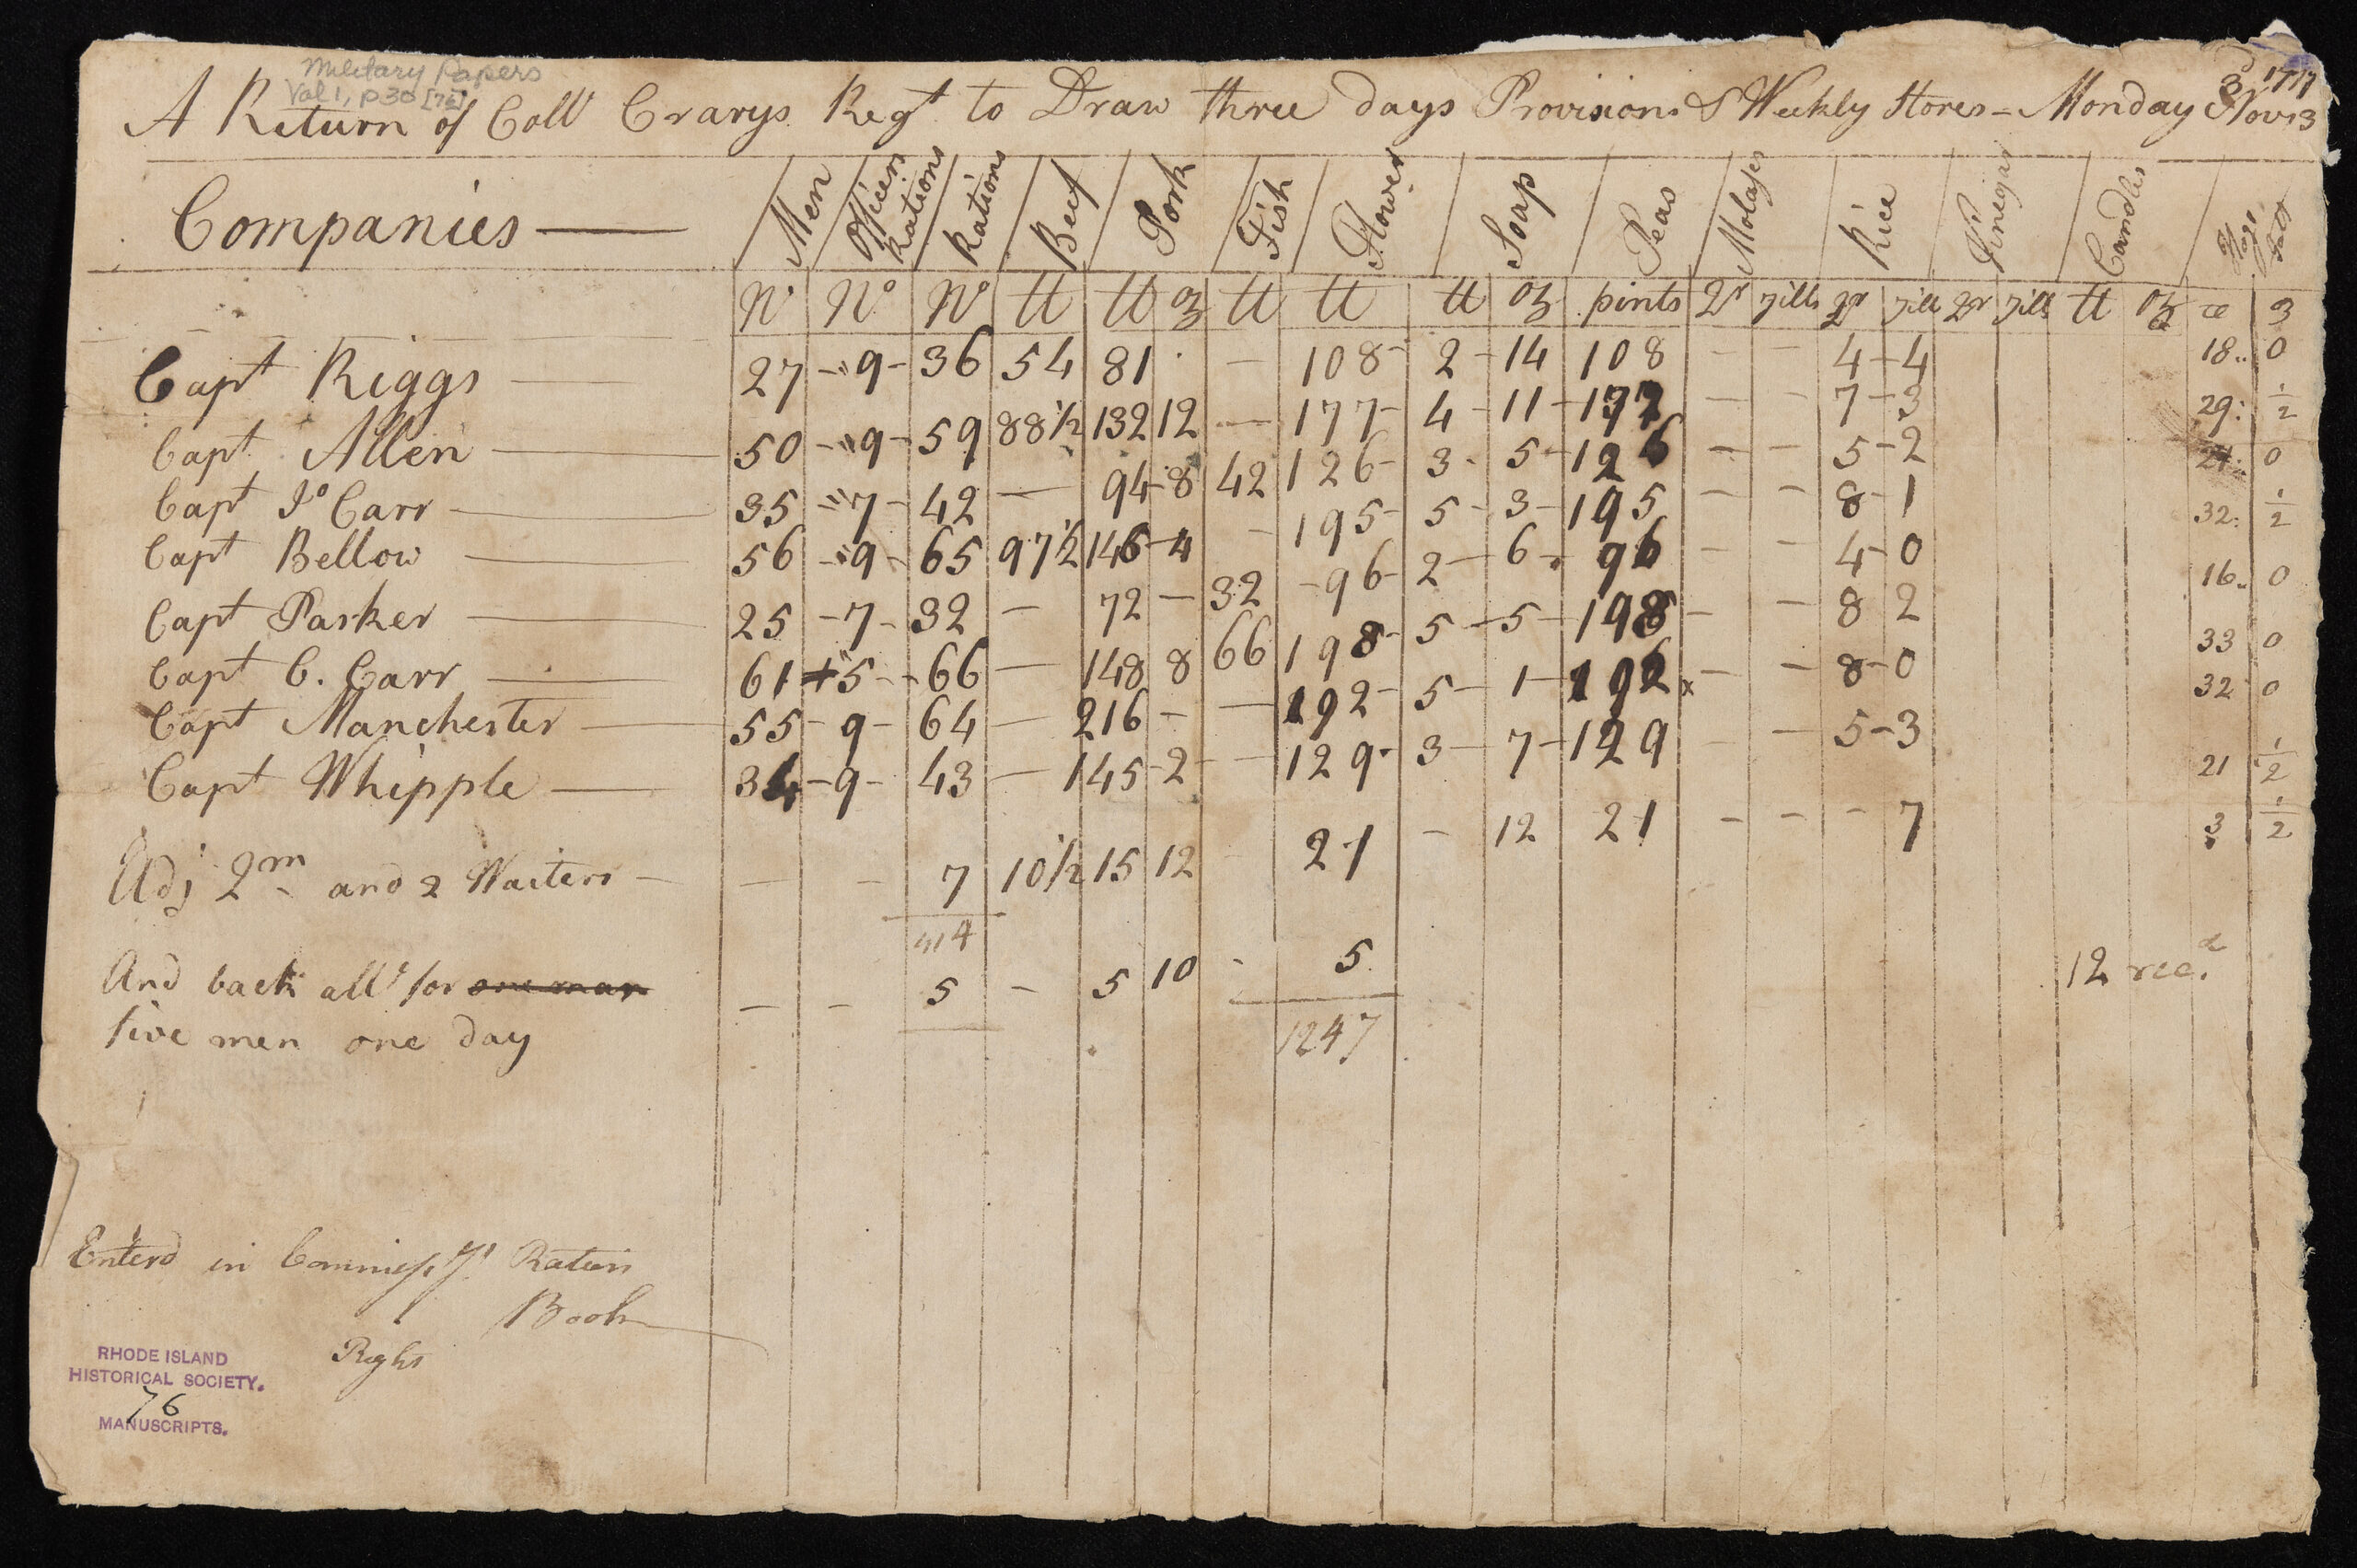 Military Papers
Vol 1, p 30 [76]
A Return of Coll Crarys Regt to Draw three days Provisions & Weekly Stores - Monday Novr 3
3d 1777
Companies — Men Officers Rations Rations Beef Pork Fish Flower Soap Peas Molases Rice Vinegar Candles
No No No lt lt oz lt lt lt oz pints Qr jills qr jill qr jills lt oz
Capt Riggs — 27 - " 9 - 36 54 81 · — 108 - 2 - 14 108 - - 4 - 4 18 .. 0
Capt Allen — 50 - " 9 - 59 88 1/2 132 12 — 177 - 4 - 11 - 177 - - 7 - 3 29 : 1/2
Capt Jo Carr — 35 " 7 - 42 — 94 - 8 42 126 - 3 - 5 - 126 - - 5 - 2 21 : 0
Capt Bellow — 56 - " 9 - 65 97 1/2 146 - 4 - 195 - 5 - 3 - 195 - - 8 - 1 32 : 1/2
Capt Parker — 25 - 7 - 32 — 72 — 32 - 96 - 2 — 6 . 96 - - 4 - 0 16 .. 0
Capt C. Carr — 61 + " 5 - 66 — 148 8 66 198 - 5 - 5 - 198 - - 8 2 33 0
Capt Manchester — 55 - 9 - 64 — 216 - — 192 - 5 - 1 - 192 x - - 8 - 0 32 0
Capt Whipple — 34 - 9 - 43 — 145 - 2 - — 129 - 3 - 7 - 129 - - 5 - 3 21 1/2
Adj Qm and 2 Waiters — — — 7 10 1/2 15 12 - 21 - 12 21 - - - 7 3 1/2
414
And back allo for one man — — 5 — 5 10 - 5 12 recd
five men one day
1247
Enterd in Commissys Ration
Book
Right
RHODE ISLAND
HISTORICAL SOCIETY.
76
MANUSCRIPTS.